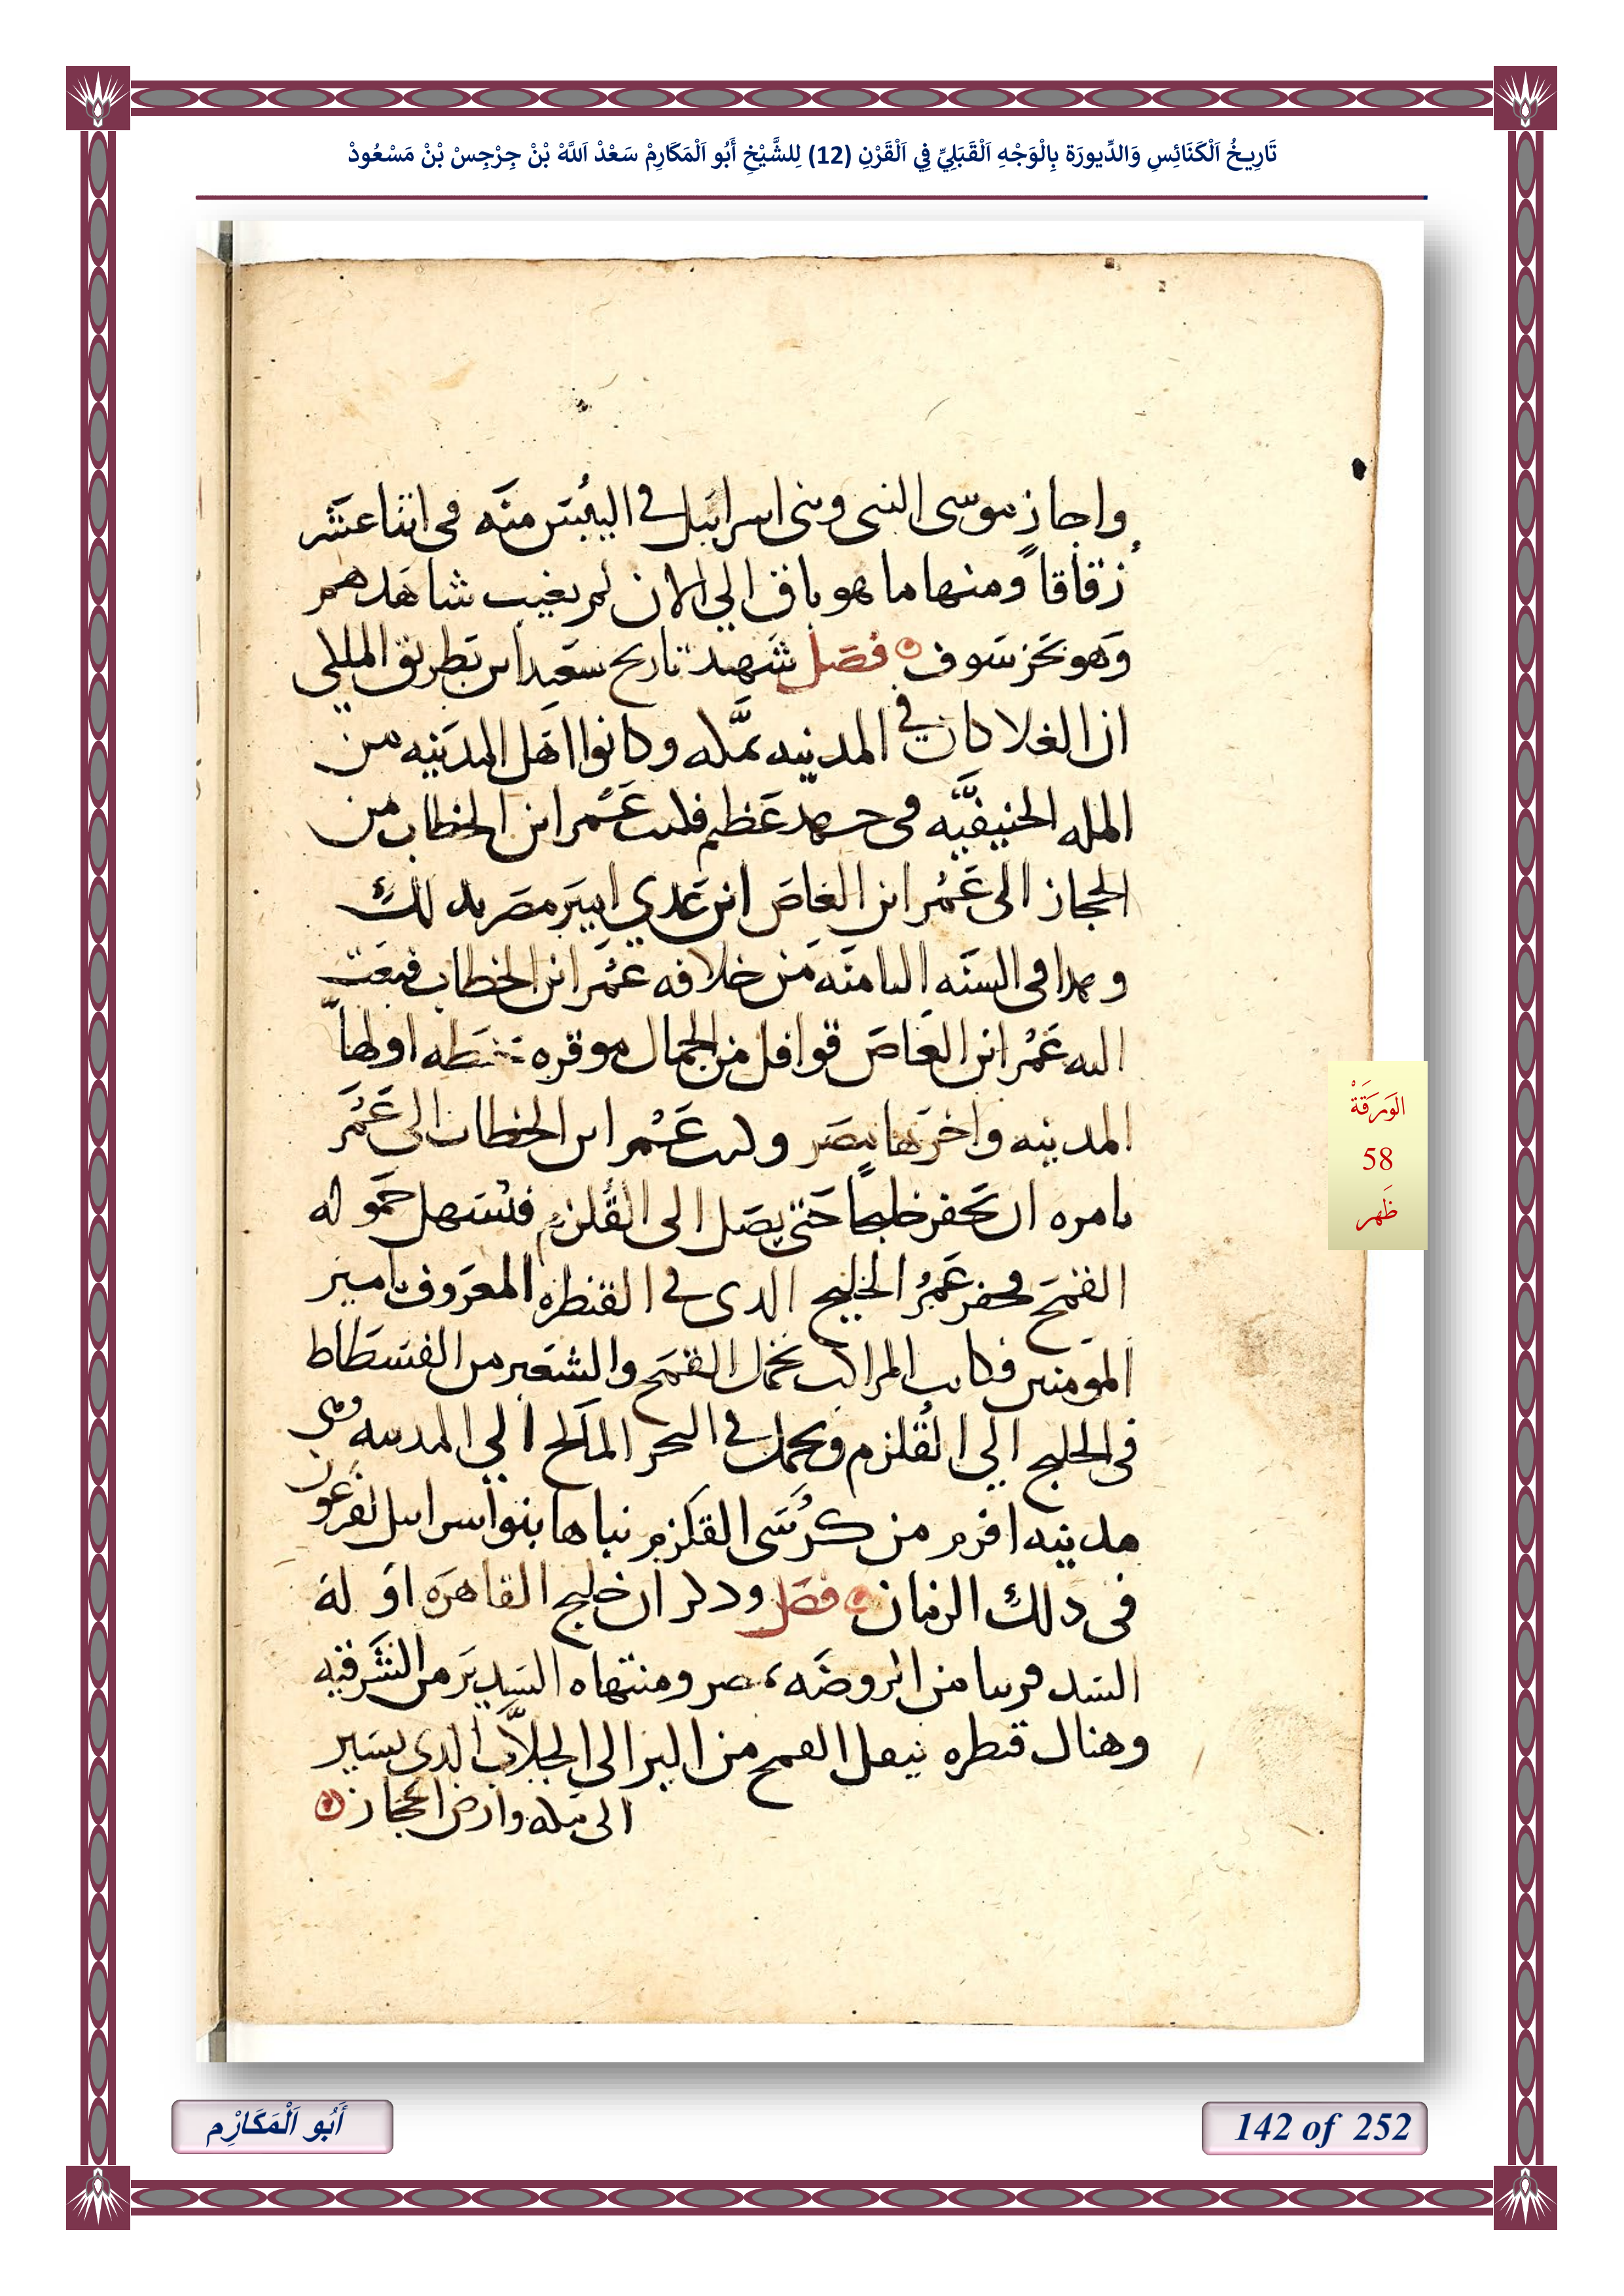 تَارِيخُ اَلْكَنَائِسِ وَالدِّيورَة بِالْوَجْهِ اَلْقَبَلِيِّ فِي اَلْقَرْنِ (12) لِلشَّيْخِ أَبُو اَلْمَكَارِمْ سَعْدْ اَللَّهْ بْنْ جِرْجِسْ بْنْ مَسْعُودْ
واجاز موسى النبى وبنى اسراييل في اليبس منه فى اثنا عشر
زقاقا ومنها ما هو باق الي الان لم يغيب شاهدهم
وهو بحر سوف فصل شهد تاريخ سعيد ابن بطريق المللى
ان الغلا كان في المدينه بمكه وكانوا اهل المدينه من
المله الحنيفيه فى جهد عظيم فكتب عمر ابن الخطاب من
الحجاز الى عمر ابن العاص ابن عدي امير مصر بدلك
وهدا فى السنه الثامنه من خلافه عمر ابن الخطاب فبعت
اليه عمر ابن العاص قوافل من الجمال موقره اولها
المدينه واخرها بمصر وكتب عمر ابن الخطاب الى عمر
يامره ان تحفر خليجا حتى يصل الى القلزم فتسهل حموله
القمح فحفر عمر الخليج الدى في القنطره المعروف بامير
المومنين فكانت المراكب تحمل القمح والشعير من الفسطاط
فى الخليج الي القلزم ويحمل في البحر المالح الي المدينه وهى
مدينه افرم من كرسى القلزم بناها بنوا اسراييل لفرعون
فى دلك الزمان فصل ودكر ان خليج القاهره اوله
السد قريبا من الروضه بمصر ومنتهاه السدير من الشرقيه
وهناك قنطره ينقل القمح من البر الى الجلاب الدى يسير
الى مكه وارض الحجاز
الوَرَقَةْ
58
ظَهر
أَبُو اَلْمَكَارِْم
142 of 252